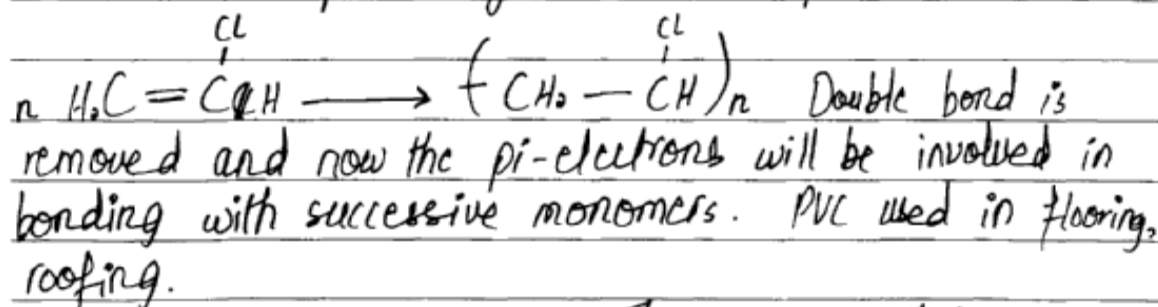 Cl Cl
n H₂C = CH ⟶ ( CH₂ — CH )n Double bond is
removed and now the pi-electrons will be involved in
bonding with successive monomers. PVC used in flooring,
roofing.